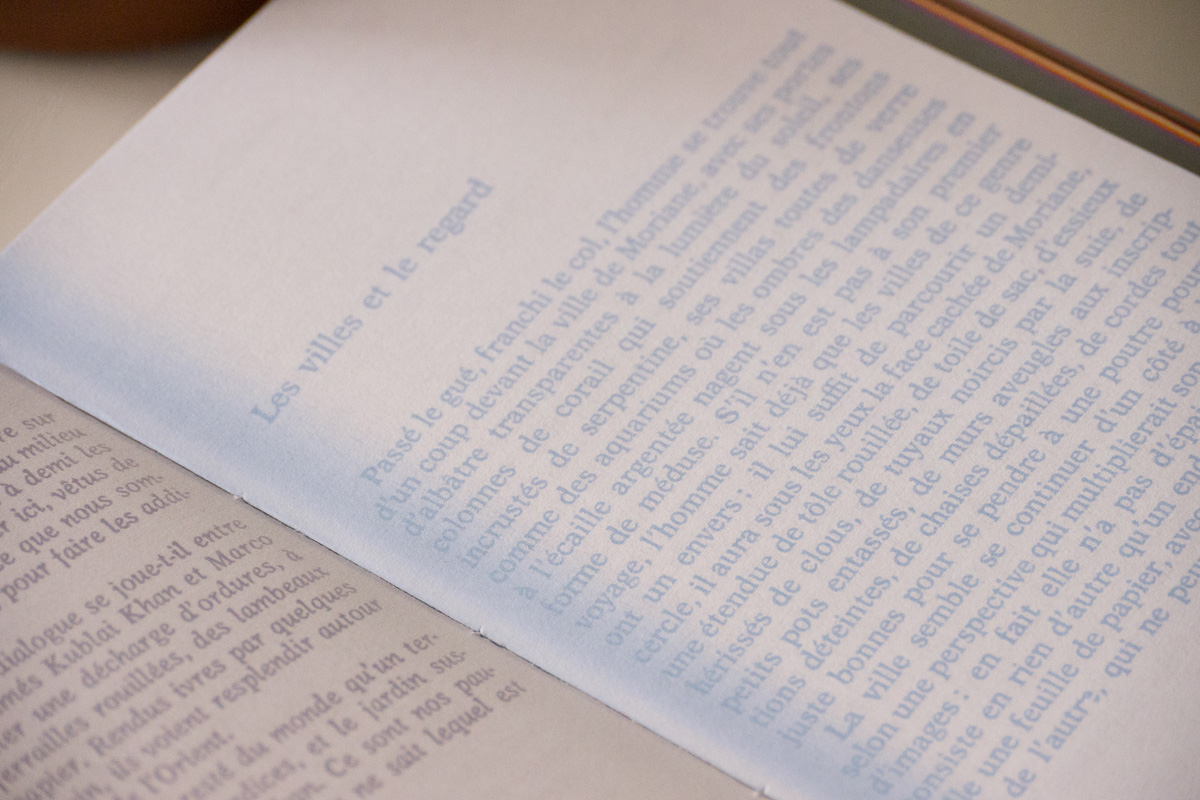 re sur
au milieu
à demi les
r ici, vêtus de
ce que nous som-
pour faire les addi-
dialogue se joue-t-il entre
més Kublai Khan et Marco
er une décharge d'ordures, à
ferrailles rouillées, des lambeaux
papier. Rendus ivres par quelques
in, ils voient resplendir autour
de l'Orient.
resté du monde qu'un ter-
ndices, et le jardin sus-
an. Ce sont nos pau-
ne sait lequel est
Les villes et le regard
Passé le gué, franchi le col, l'homme se trouve tout
d'un coup devant la ville de Moriane, avec ses portes
d'albâtre transparentes à la lumière du soleil, ses
colonnes de corail qui soutiennent des frontons
incrustés de serpentine, ses villas toutes de verre
comme des aquariums où les ombres des danseuses
à l'écaille argentée nagent sous les lampadaires en
forme de méduse. S'il n'en est pas à son premier
voyage, l'homme sait déjà que les villes de ce genre
ont un envers : il lui suffit de parcourir un demi-
cercle, il aura sous les yeux la face cachée de Moriane,
une étendue de tôle rouillée, de toile de sac, d'essieux
hérissés de clous, de tuyaux noircis par la suie, de
petits pots entassés, de murs aveugles aux inscrip-
tions déteintes, de chaises dépaillées, de cordes tout
juste bonnes pour se pendre à une poutre pour
La ville semble se continuer d'un côté à
selon une perspective qui multiplierait son
d'images : en fait elle n'a pas d'épai
onsiste en rien d'autre qu'un en
le une feuille de papier, avec
de l'autre, qui ne peu